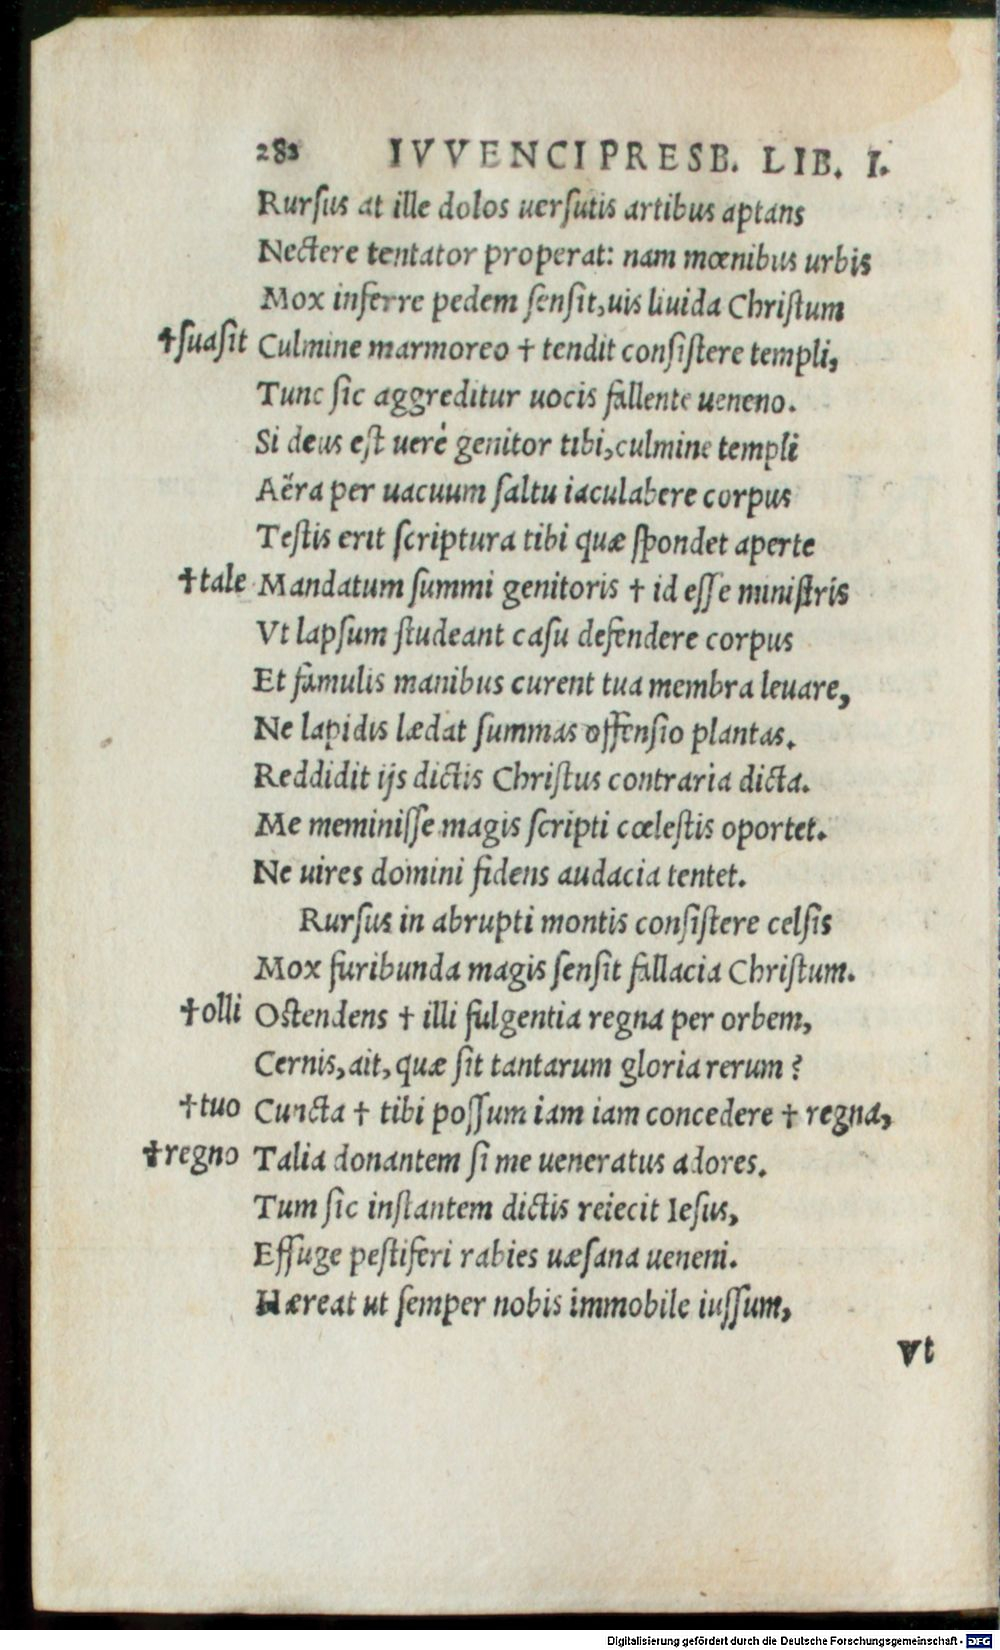 282 IVVENCI PRESB. LIB. I.
Rurſus at ille dolos uerſutis artibus aptans
Nectere tentator properat: nam mœnibus urbis
Mox inferre pedem ſenſit, uis liuida Chriſtum
†ſuaſit Culmine marmoreo † tendit conſiſtere templi,
Tunc ſic aggreditur uocis fallente ueneno.
Si deus eſt ueré genitor tibi, culmine templi
Aëra per uacuum ſaltu iaculabere corpus
Teſtis erit ſcriptura tibi quæ ſpondet aperte
†tale Mandatum ſummi genitoris † id eſſe miniſtris
Vt lapſum ſtudeant caſu defendere corpus
Et famulis manibus curent tua membra leuare,
Ne lapidis lædat ſummas offenſio plantas.
Reddidit ijs dictis Chriſtus contraria dicta.
Me meminiſſe magis ſcripti cœleſtis oportet.
Ne uires domini fidens audacia tentet.
Rurſus in abrupti montis conſiſtere celſis
Mox furibunda magis ſenſit fallacia Chriſtum.
†olli Oſtendens † illi fulgentia regna per orbem,
Cernis, ait, quæ ſit tantarum gloria rerum?
†tuo Cuncta † tibi poſſum iam iam concedere † regna,
†regno Talia donantem ſi me ueneratus adores.
Tum ſic inſtantem dictis reiecit Ieſus,
Effuge peſtiferi rabies uæſana ueneni.
Hæreat ut ſemper nobis immobile iuſſum,
Vt
Digitalisierung gefördert durch die Deutsche Forschungsgemeinschaft - DFG